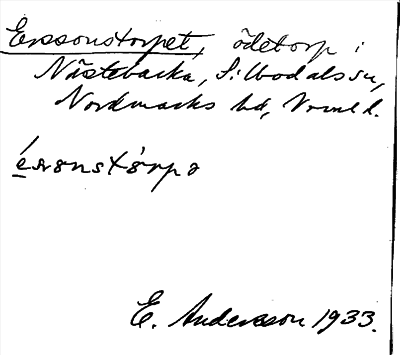 Erssonstorpet, ödetorp i
Nästebacka, Silbodals sn,
Nordmarks hd, Vrml.
ér̨sonstòrpə
E. Andersson 1933.